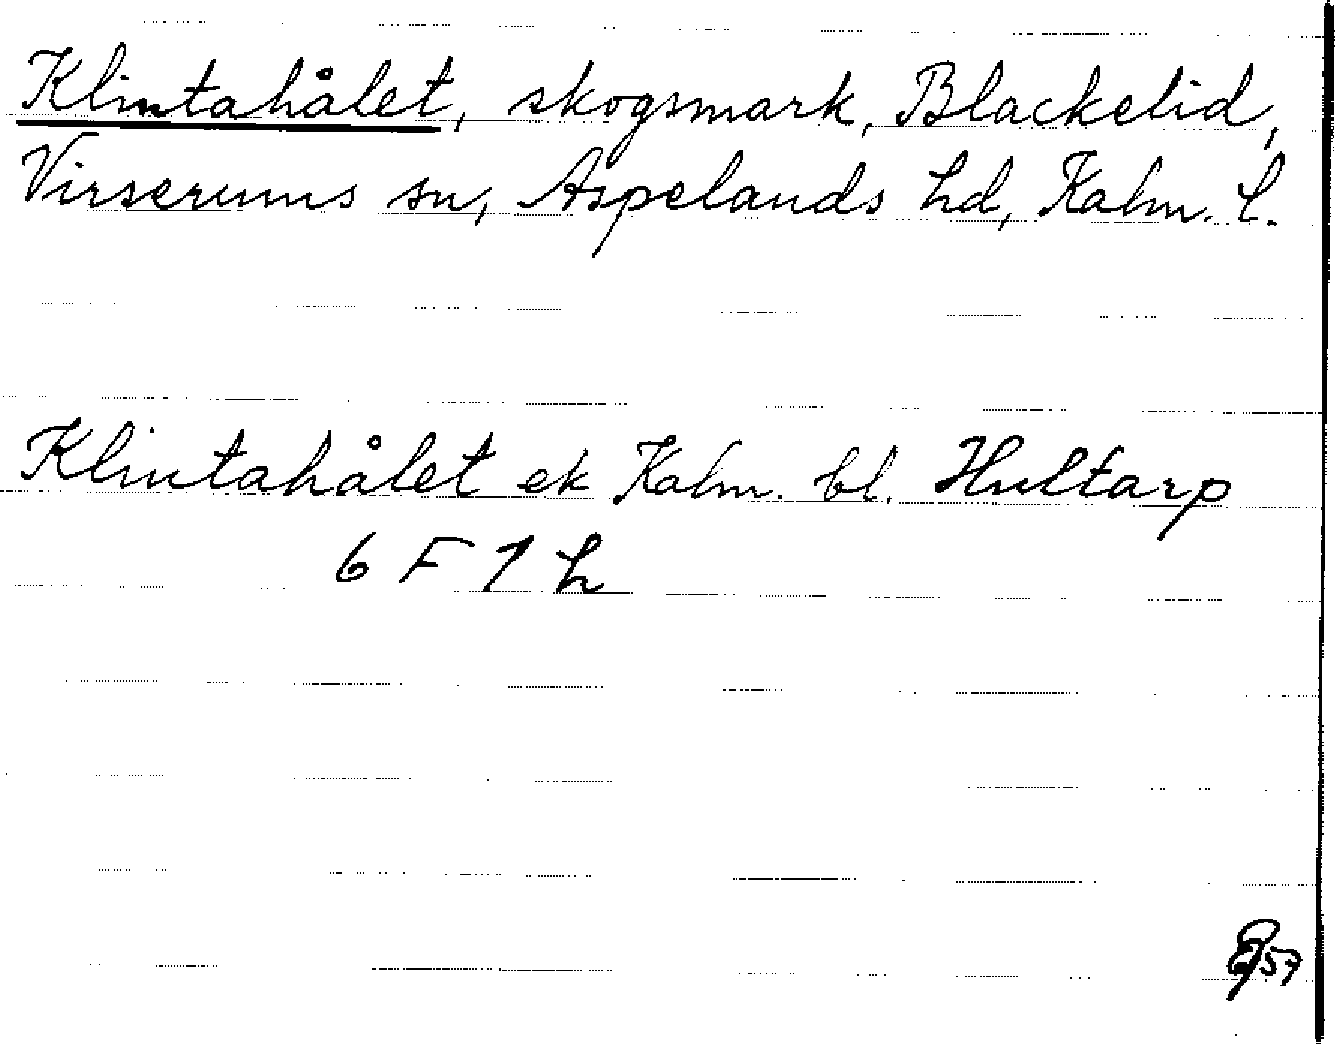 Klintahålet, skogsmark, Blackelid,
Virserums sn, Aspelands hd, Kalm. l.
Klintahålet ek Kalm. bl. Hultarp
6 F 1 h
57